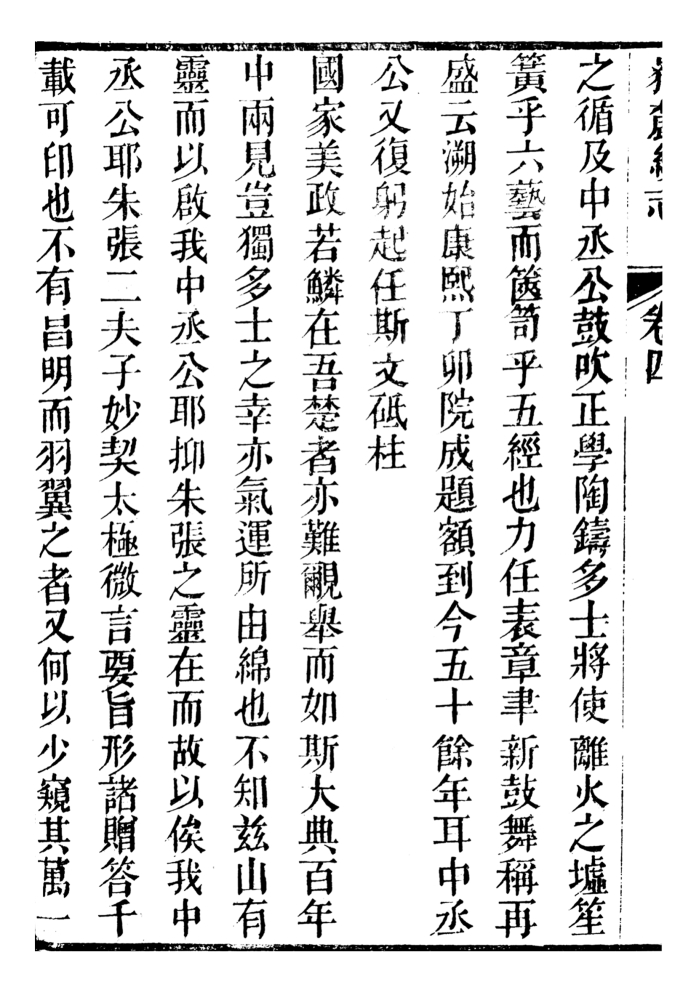 卷四
之循及中丞公鼓吹正學陶鑄多士將使離火之墟笙
簧乎六藝而篋笥乎五經也力任表章聿新鼓舞稱再
盛云溯始康熙丁卯院成題額到今五十餘年耳中丞
公又復躬起任斯文砥柱
國家美政若鱗在吾楚者亦難覼舉而如斯大典百年
中兩見豈獨多士之幸亦氣運所由綿也不知茲山有
靈而以啟我中丞公耶抑朱張之靈在而故以俟我中
丞公耶朱張二夫子妙契太極微言要旨形諸贈答千
載可印也不有昌明而羽翼之者又何以少窺其萬一